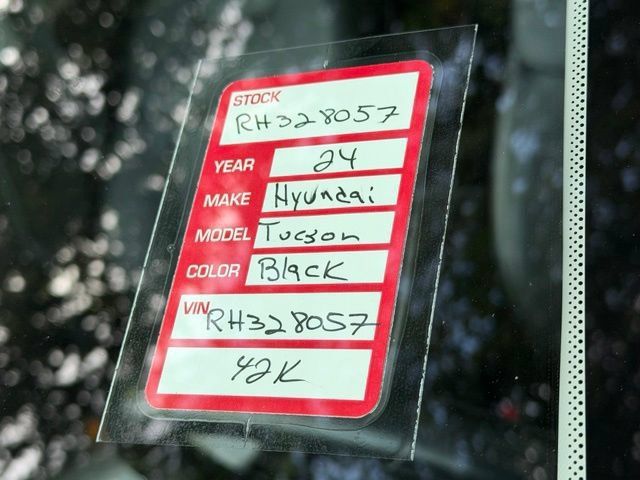 STOCK
RH328057
YEAR 24
MAKE Hyundai
MODEL Tucson
COLOR Black
VIN RH328057
42K